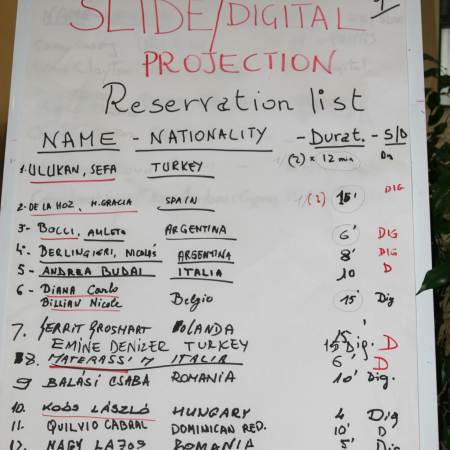 SLIDE/DIGITAL
PROJECTION
Reservation list
NAME - NATIONALITY - Durat. - S/D
1. ULUKAN, SEFA TURKEY (2) x 12 min Dig
2. DE LA HOZ, M. GRACIA SPAIN (2) 15' DIG
3- BOLLI, AULETO ARGENTINA 6' DIG
4- BERLINGIERI, NICOLÁS ARGENTINA 8' DIG
5 - ANDREA BUDAI ITALIA 10 D
6 - DIANA Carlo
BILLIAN Nicole Belgio 15' Dig
7. GERRIT GROSHART HOLANDA
EMINE DENIZER TURKEY 15' Dig. D
8. MATERASSI M ITALIA 6' D
9 BALÁSI CSABA ROMANIA 10' Dig.
10. KOÓS LÁSZLÓ HUNGARY 4 Dig
11. QUILVIO CABRAL DOMINICAN RED. 10' D
12. NAGY LAJOS ROMANIA 5' Dig